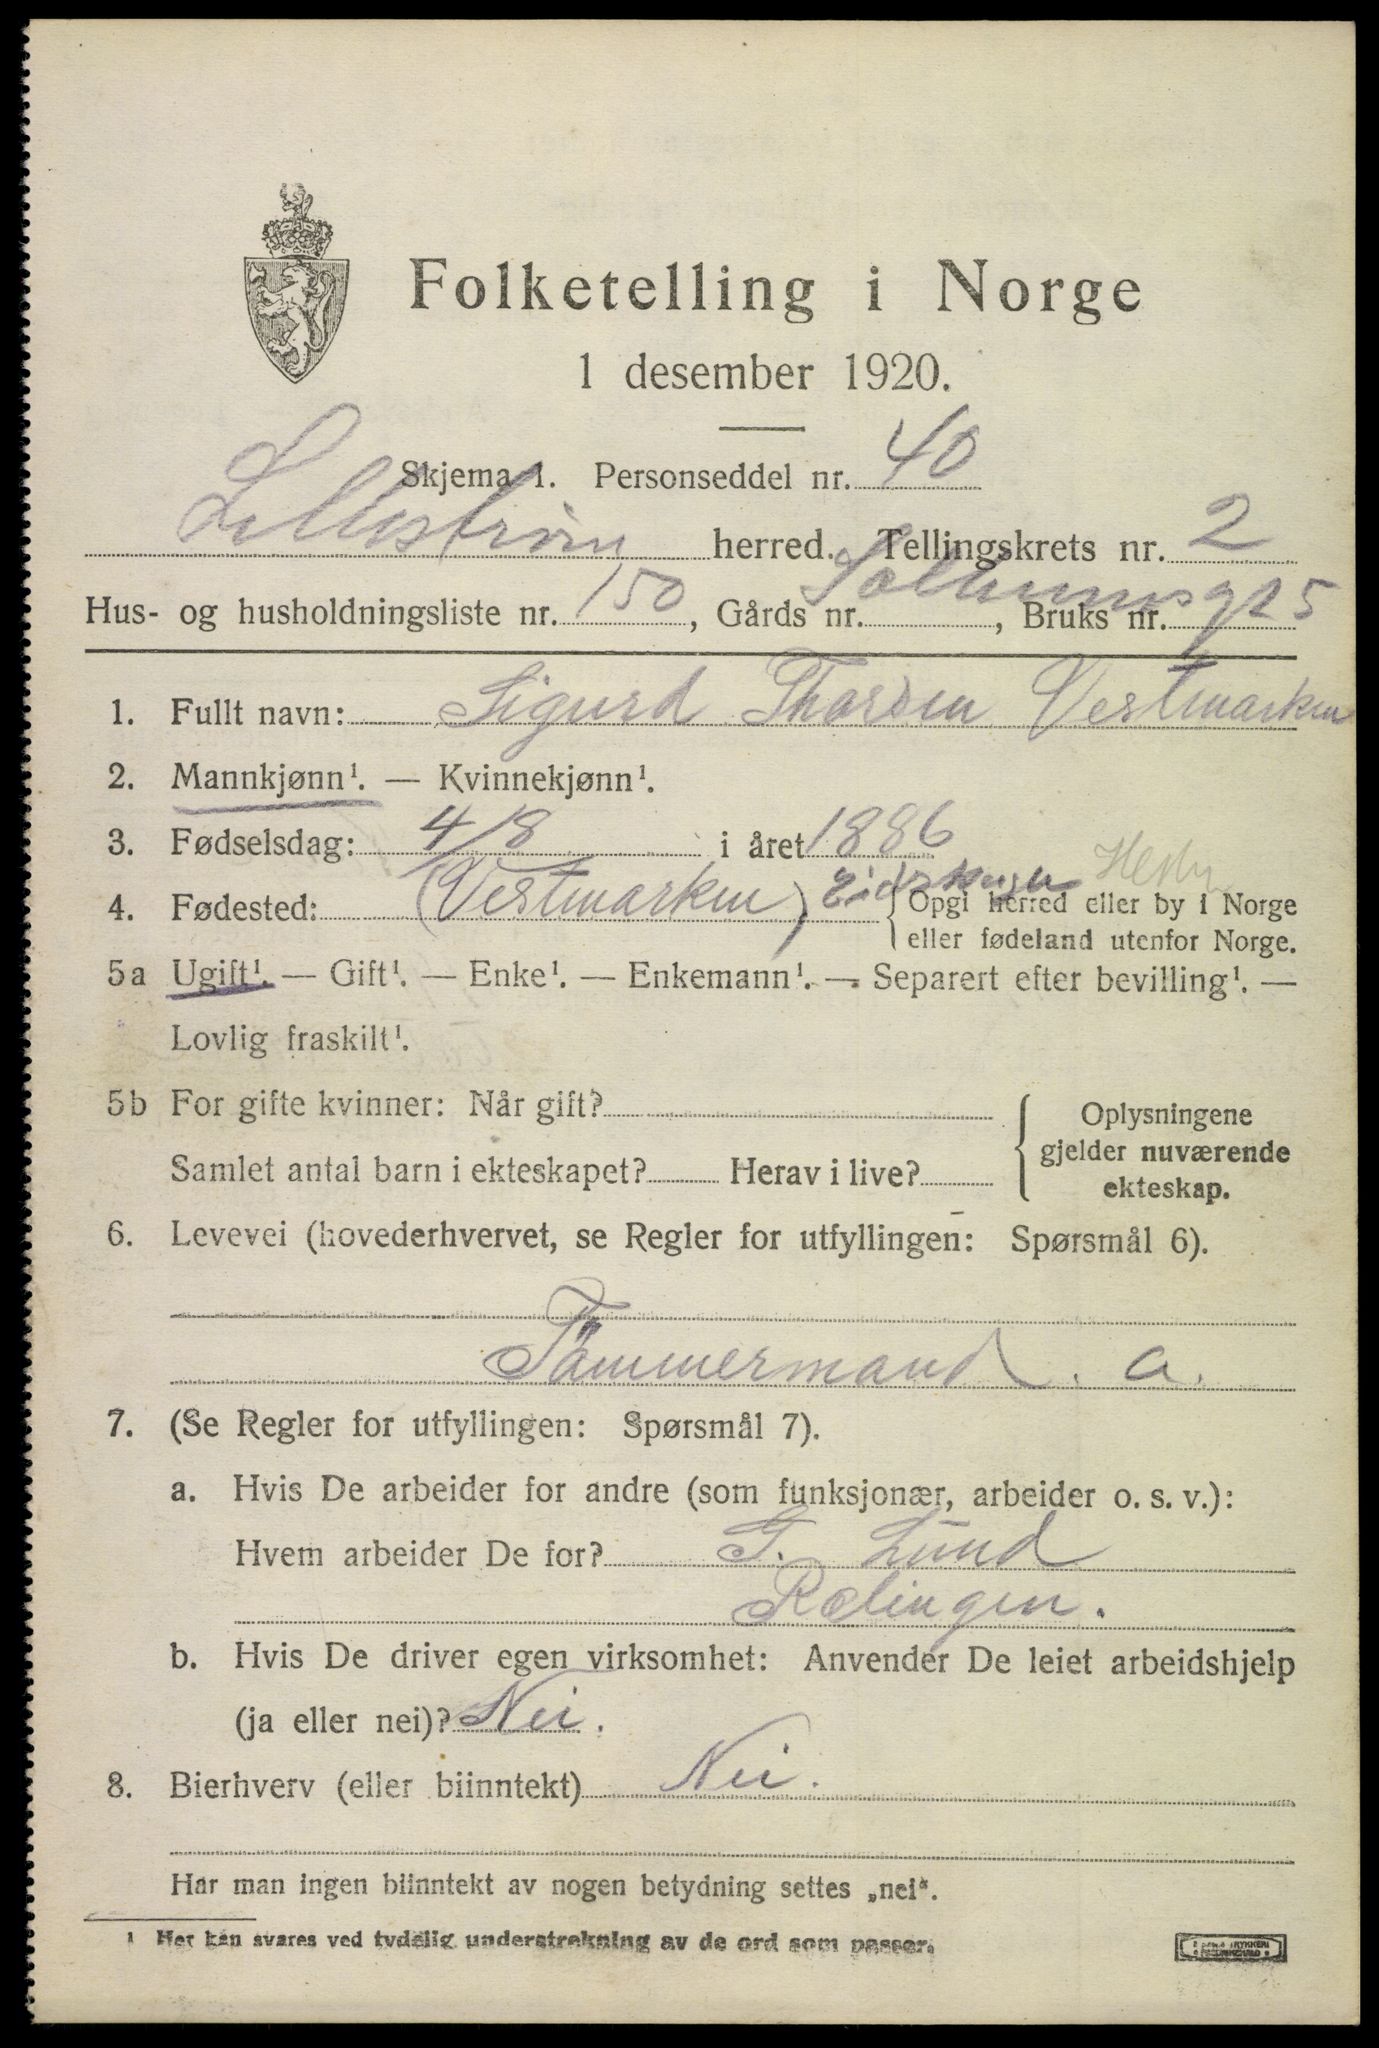 Folketelling i Norge
1 desember 1920.
Skjema 1. Personseddel nr. 40
Lillestrøm herred. Tellingskrets nr. 2
Hus- og husholdningsliste nr. 150, Gårds nr. , Bruks nr. 25
1. Fullt navn: Sigurd Vestmarken
2. Mannkjønn¹. — Kvinnekjønn¹.
3. Fødselsdag: 4/8 i året 1886
4. Fødested: (Vestmarken) Eidskogen
{ Opgi herred eller by i Norge
eller fødeland utenfor Norge.
5a Ugift¹. — Gift¹. — Enke¹. — Enkemann¹. — Separert efter bevilling¹. —
Lovlig fraskilt¹.
5b For gifte kvinner: Når gift?
Samlet antal barn i ekteskapet? Herav i live?
{ Oplysningene
gjelder nuværende
ekteskap.
6. Levevei (hovederhvervet, se Regler for utfyllingen: Spørsmål 6).
Tömmermand. a.
7. (Se Regler for utfyllingen: Spørsmål 7).
a. Hvis De arbeider for andre (som funksjonær, arbeider o. s. v.):
Hvem arbeider De for? G. Lund
Rælingen.
b. Hvis De driver egen virksomhet: Anvender De leiet arbeidshjelp
(ja eller nei)? Nei.
8. Bierhverv (eller biinntekt) Nei.
Har man ingen biinntekt av nogen betydning settes „nei“.
¹ Her kan svares ved tydelig understrekning av de ord som passer.